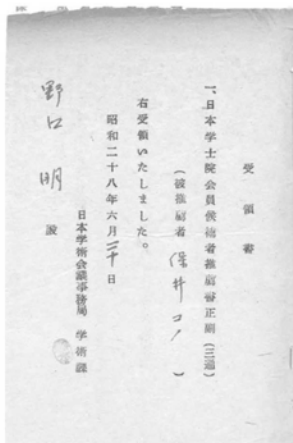 受領書
一、日本学士院会員候補者推薦書正副（三通）
（被推薦者 保井コノ）
右受領いたしました。
昭和二十八年六月三十日
日本学術会議事務局 学術課
野口 明 殿